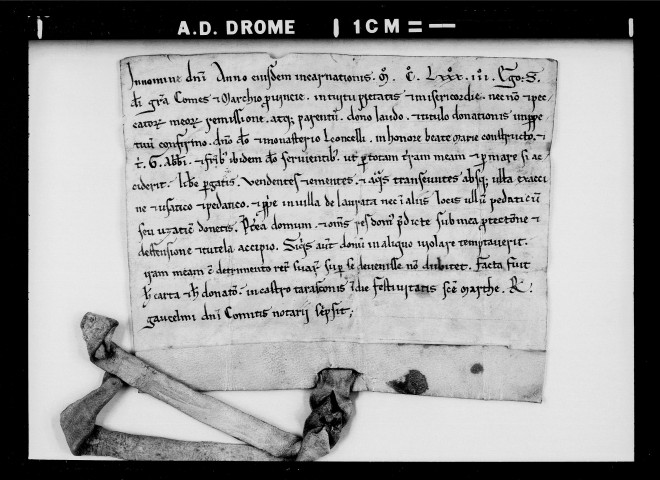 A.D. DROME | 1CM = —
Innomine dnī Anno eiusdem incarnationis. M. C. Lxxx. iii. Ego. S.
dī gr̄a Comes & Marchio provincie. intuitu pietatis & misericordie. nec nō & pec
catorꝝ meorꝝ remissione. atqꝫ parentū. dono laudo. & titulo donationis inppe
tuū confirmo. dnō dō & monasterio Leoncelli. inhonore beate Marie constructo. &
G. Abbī. & frībꝫ ibidem dō servientibꝫ. ut ptotam t̄ram meam & pmare si ac
ciderit. libe pgatis. Vendentes & ementes. & aqs transeuntes absqꝫ ulla exacci
ne & usatico & pedatico. & ppe in villa de laurata nec ī aliis locis ullū pedaticū
seu uzaticū donetis. Pt̄ea domum. & oms res dom̄ pdicte sub mea ptectōne &
deffensione & tutela accipio. Siqs aut̄ donū in aliquo violare temptaverit.
iram meam c̄ detrimento rerꝝ suarꝝ sup se devenisse nō dubitet. Facta fuit
h̄ carta & h̄ donatō. incastro tarasconis ī die festivitatis sc̄e marthe. R.
gaucelmi dnī Comitis notarii sc̄psit;